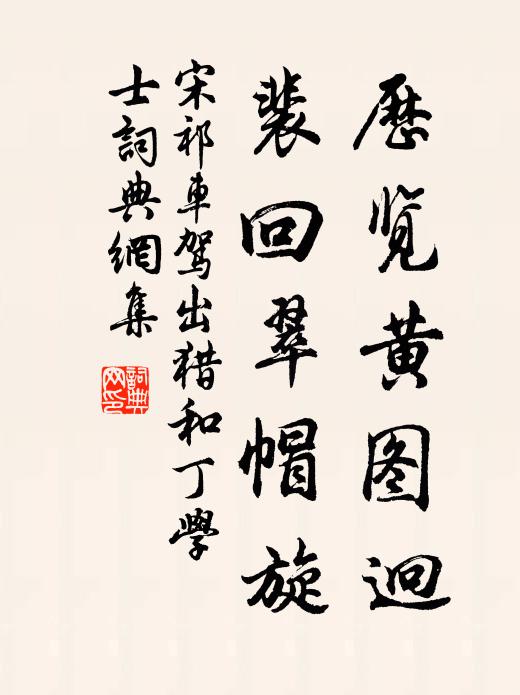 歷览黄图迥
裴回翠帽旋
宋祁車駕出猎和丁學
士詞典網集
詞典
网印